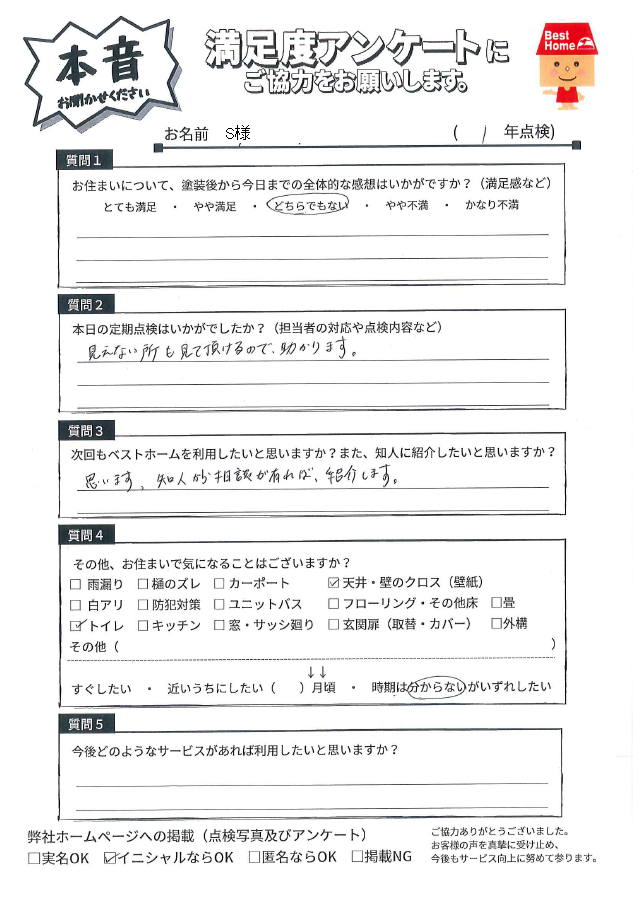 本音
お聞かせください
満足度アンケートに
ご協力をお願いします。
Best
Home
お名前 S様 ( 1 年点検)
質問1
お住まいについて、塗装後から今日までの全体的な感想はいかがですか？（満足感など）
とても満足 ・ やや満足 ・ どちらでもない ・ やや不満 ・ かなり不満
質問2
本日の定期点検はいかがでしたか？（担当者の対応や点検内容など）
見えない所も見て頂けるので、助かります。
質問3
次回もベストホームを利用したいと思いますか？また、知人に紹介したいと思いますか？
思います、知人から相談が有れば、紹介します。
質問4
その他、お住まいで気になることはございますか？
□ 雨漏り □ 樋のズレ □ カーポート ☑ 天井・壁のクロス（壁紙）
□ 白アリ □ 防犯対策 □ ユニットバス □ フローリング・その他床 □畳
☑ トイレ □ キッチン □ 窓・サッシ廻り □ 玄関扉（取替・カバー） □外構
その他（ ）
↓↓
すぐしたい ・ 近いうちにしたい（ ）月頃 ・ 時期は分からないがいずれしたい
質問5
今後どのようなサービスがあれば利用したいと思いますか？
弊社ホームページへの掲載（点検写真及びアンケート）
□実名OK ☑イニシャルならOK □匿名ならOK □掲載NG
ご協力ありがとうございました。
お客様の声を真摯に受け止め、
今後もサービス向上に努めて参ります。